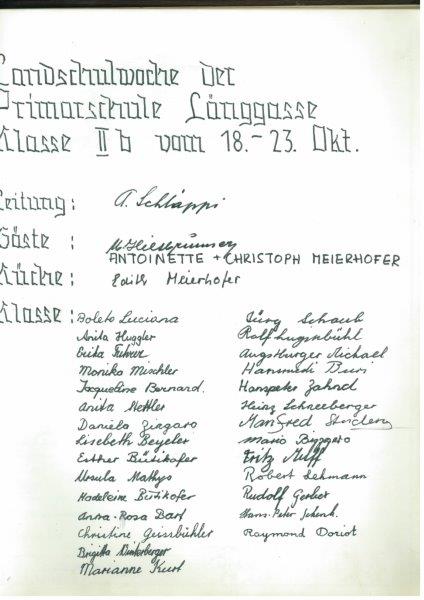 Landschulwoche der
Primarschule Länggasse
Klasse II b vom 18.-23. Okt.
Leitung: A. Schläppi
Gäste:
ANTOINETTE + CHRISTOPH MEIERHOFER
Küche: Edith Meierhofer
Klasse: Boleto Luciana
Anita Huggler
Erika Fuhrer
Monika Mischler
Jacqueline Bernard.
Anita Nettler
Daniela Zingaro
Liselotte Beyeler
Esther Bütikofer
Ursula Mathys
Madeleine Bütikofer
Anna-Rosa Bart
Christine Geissbühler
Brigitta Winterberger
Marianne Kurt
Jürg Schaub
Rolf Luginbühl
Augsburger Michael
Hansruedi Buri
Hanspeter Zahnd
Heinz Schneeberger
Manfred
Mario
Fritz
Robert Lehmann
Rudolf Gerber
Hans-Peter Schenk.
Raymond Doriot